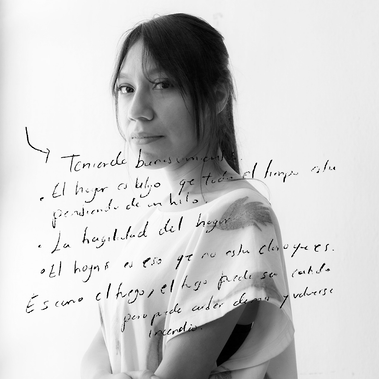 • El hogar es algo que todo el tiempo esta
pendiendo de un hilo.
• La fragilidad del hogar
• El hogar es eso que no esta claro que es.
Es como el fuego, el fuego puede ser
pero puede arder de mas y volverse
incendio.